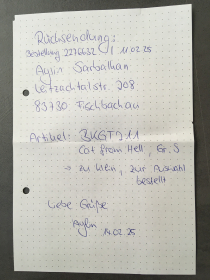 Rücksendung:
Bestellung 2276632 | 11.02.25
Aylin Sarbalkan
Leitzachtalstr. 208
83730 Fischbachau
Artikel: BKGTJ11
Cat from Hell, Gr. S
→ zu klein, zur Auswahl
bestellt
Liebe Grüße
Aylin 14.02.25